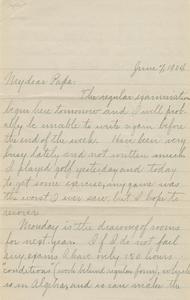 June 7, 1904.
My dear Papa:
The regular examinations
begin here tomorrow and I will prob-
ably be unable to write again before
the end of the week. Have been very
busy lately and not written much
I played golf yesterday and today
to get some exercise, my game was
the worst I ever saw, but I hope to
recover.
Monday is the drawing of rooms
for next year. If I do not fail
any exams I have only 180 hours
conditions (work behind regular form), which
is in Algebra, and so can make the